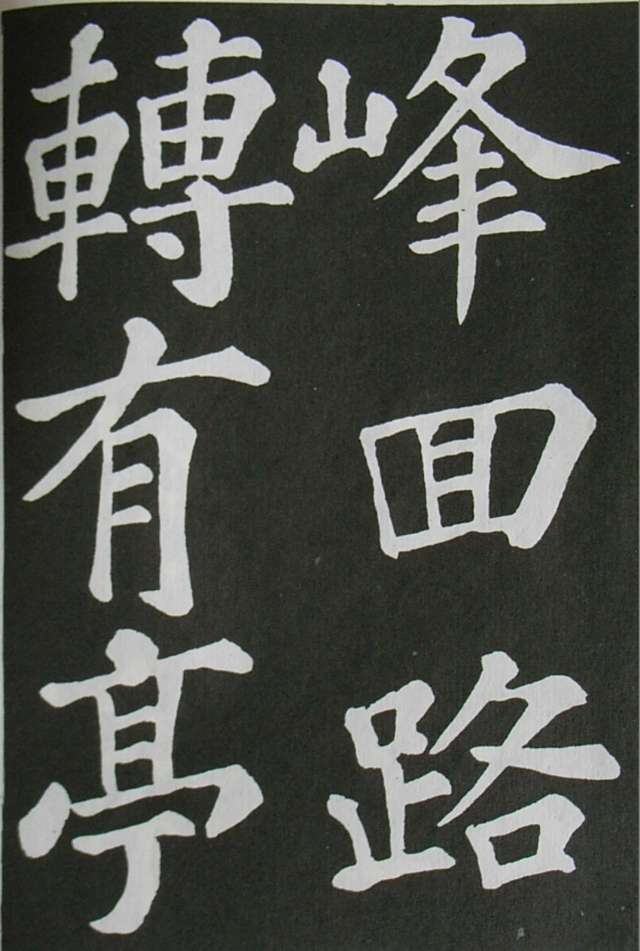 峰回路
轉有亭